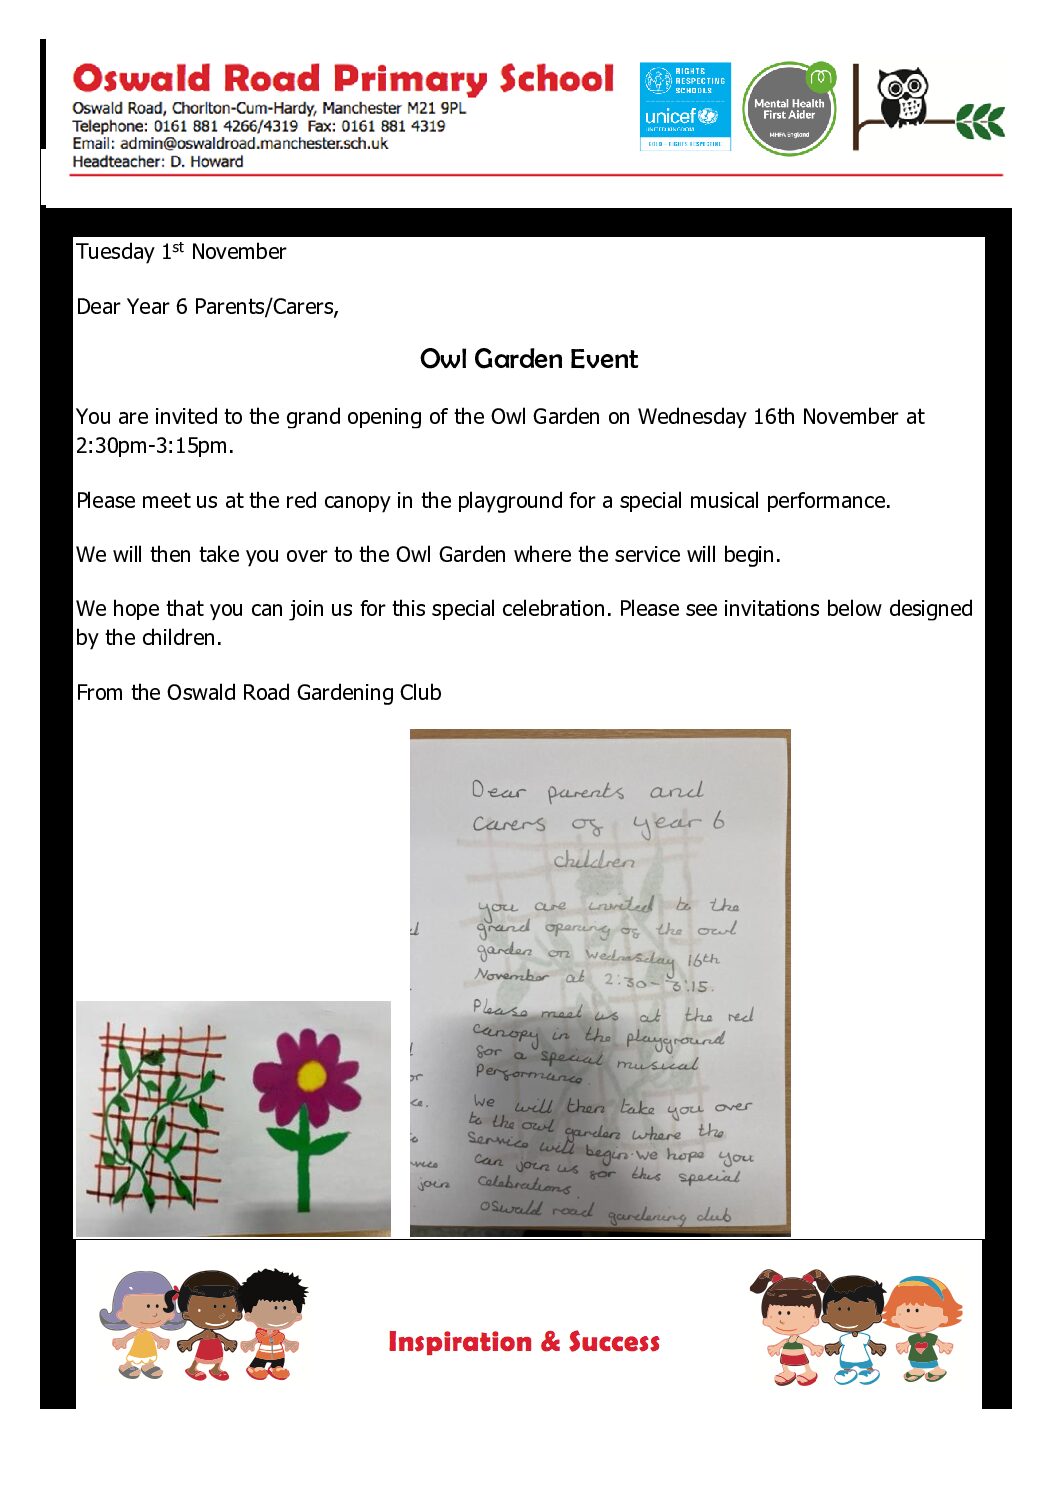 Oswald Road Primary School
Oswald Road, Chorlton-Cum-Hardy, Manchester M21 9PL
Telephone: 0161 881 4266/4319  Fax: 0161 881 4319
Email: admin@oswaldroad.manchester.sch.uk
Headteacher: D. Howard
RIGHTS
RESPECTING
SCHOOLS
unicef
UNITED KINGDOM
GOLD - RIGHTS RESPECTING
Mental Health
First Aider
MHFA England
Tuesday 1st November
Dear Year 6 Parents/Carers,
Owl Garden Event
You are invited to the grand opening of the Owl Garden on Wednesday 16th November at
2:30pm-3:15pm.
Please meet us at the red canopy in the playground for a special musical performance.
We will then take you over to the Owl Garden where the service will begin.
We hope that you can join us for this special celebration. Please see invitations below designed
by the children.
From the Oswald Road Gardening Club
Dear parents and
carers of year 6
children
you are invited to the
grand opening of the owl
garden on Wednesday 16th
November at 2:30-3:15.
Please meet us at the red
canopy in the playground
for a special musical
Performance.
We will then take you over
to the owl garden where the
service will begin. we hope you
can join us for this special
celebrations.
oswald road gardening club
join
Inspiration & Success